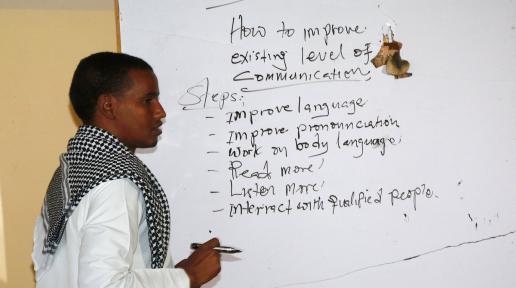 How to improve
existing level of
Communication,
Steps:
- Improve language
- Improve pronounciation
- Work on body language,
- Read more,
- Listen more,
- interract with qualified people.